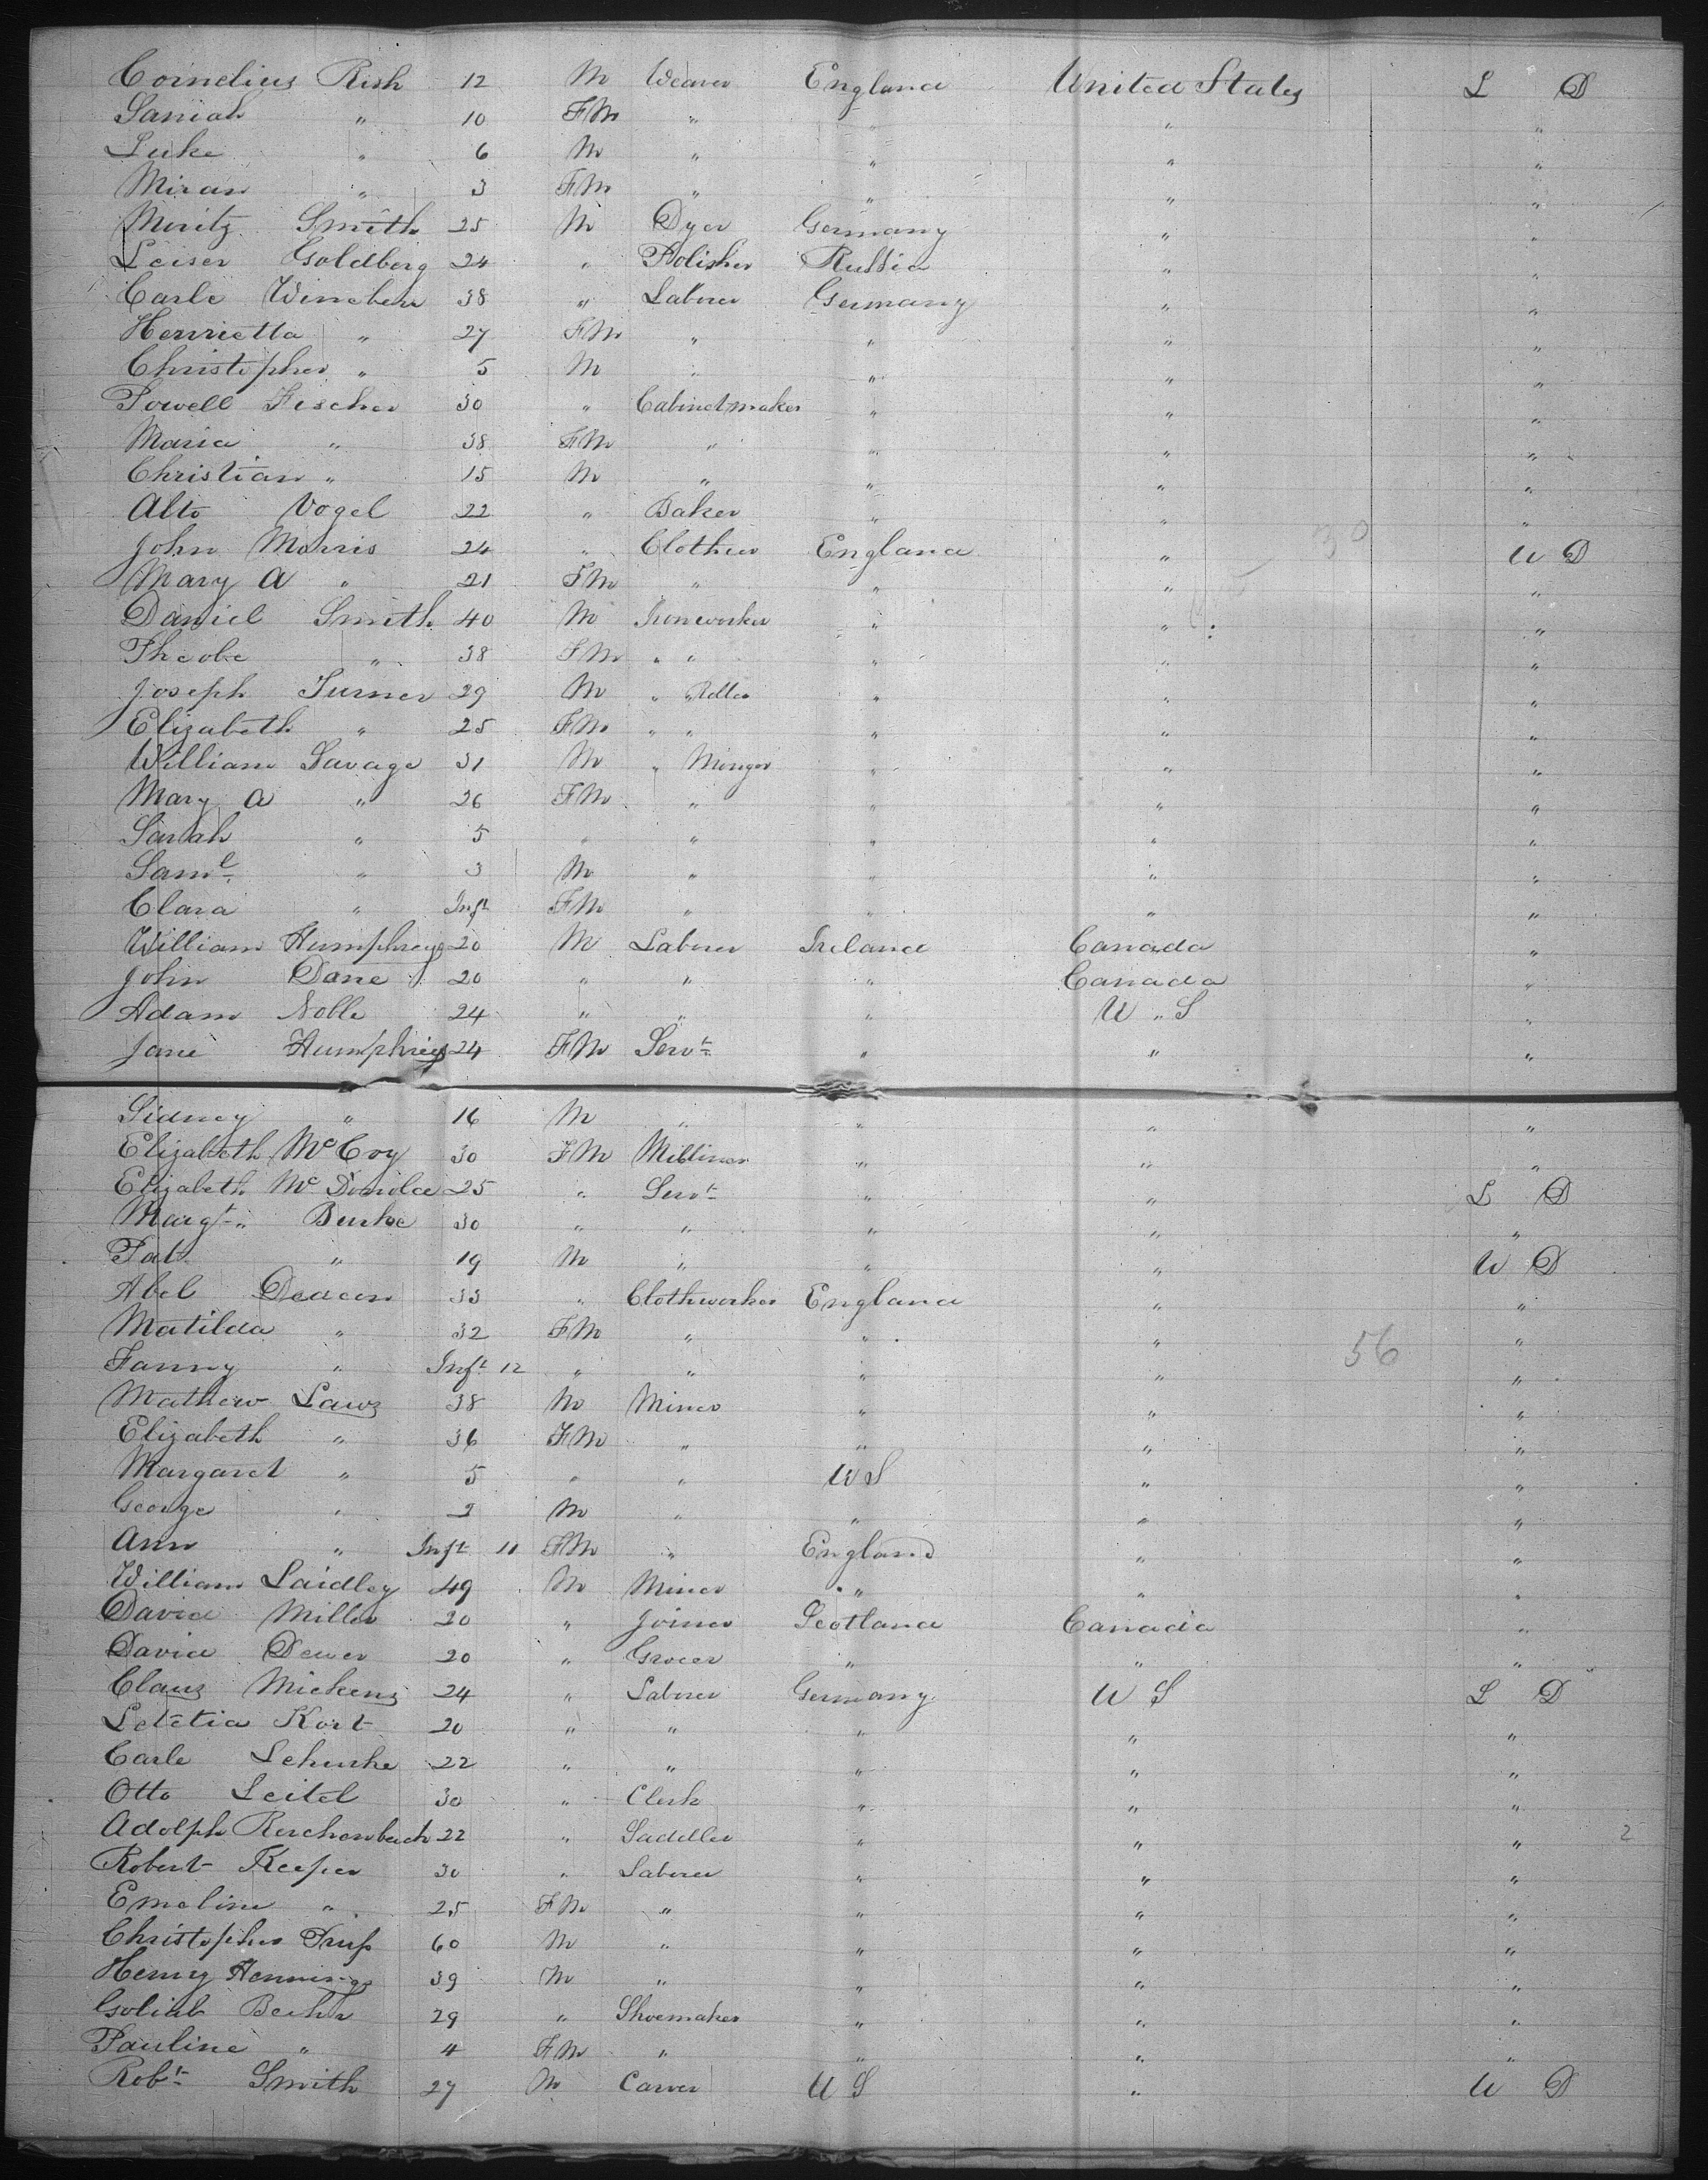 Cornelius Rish 12 M Weaver England United States L D
Saniah " 10 FM " " " "
Luke " 6 M " " " "
Miran " 3 FM " " " "
Moritz Smith 25 M Dyer Germany " "
Leiser Goldberg 24 " Polisher Russia " "
Carle Wineberr 38 " Laborer Germany " "
Henrietta " 27 FM " " " "
Christopher " 5 M " " " "
Powell Fischer 30 " Cabinetmaker " " "
Maria " 38 FM " " " "
Christian " 15 M " " " "
Alto Vogel 22 " Baker " " "
John Morris 24 " Clothier England " 30 U D
Mary A " 21 FM " " " "
Daniel Smith 40 M Ironworker " " "
Pheobe " 38 FM " " " " "
Joseph Turner 29 M " " " "
Elizabeth " 25 FM " " " " "
William Savage 31 M " " " "
Mary A " 26 FM " " " "
Sarah " 5 " " " " "
Saml " 3 M " " " "
Clara " Inft FM " " " "
William Humphreys 20 M Laborer Ireland Canada "
John Dane 20 " " " Canada "
Adam Noble 24 " " " U " S "
Jane Humphreys 24 FM Servt " " "
Sidney " 16 M " " " "
Elizabeth McCoy 30 FM Milliner " " "
Elizabeth Mc 25 " Servt " " L D
Margt " Burke 30 " " " " "
Pat " 19 M " " " U D
Abel Deacon 33 " Clothworker England " "
Matilda " 32 FM " " " "
Fanny " Inft 12 " " " " 56 "
Mathew Laws 38 M Miner " " "
Elizabeth " 36 FM " " " "
Margaret " 5 " " U S " "
George " 2 M " " " "
Ann " Inft 11 FM " England " "
William Laidley 49 M Miner " " "
David Miller 20 " Joiner Scotland Canada "
David Dewer 20 " Grocer " " "
Claus Mickens 24 " Laborer Germany U S L D
Letetia Kort 20 " " " " "
Carle Schurke 22 " " " " "
Otto Seitel 30 " Clerk " " "
Adolph Reichenbach 22 " Saddler " " " 2
Robert Keeper 30 " Laborer " " "
Emeline " 25 FM " " " "
Christopher Trup 60 M " " " "
Henry Hennings 39 M " " " "
Goliab Beehr 29 " Shoemaker " " "
Pauline " 4 FM " " " "
Robt Smith 27 M Carver U S " U D